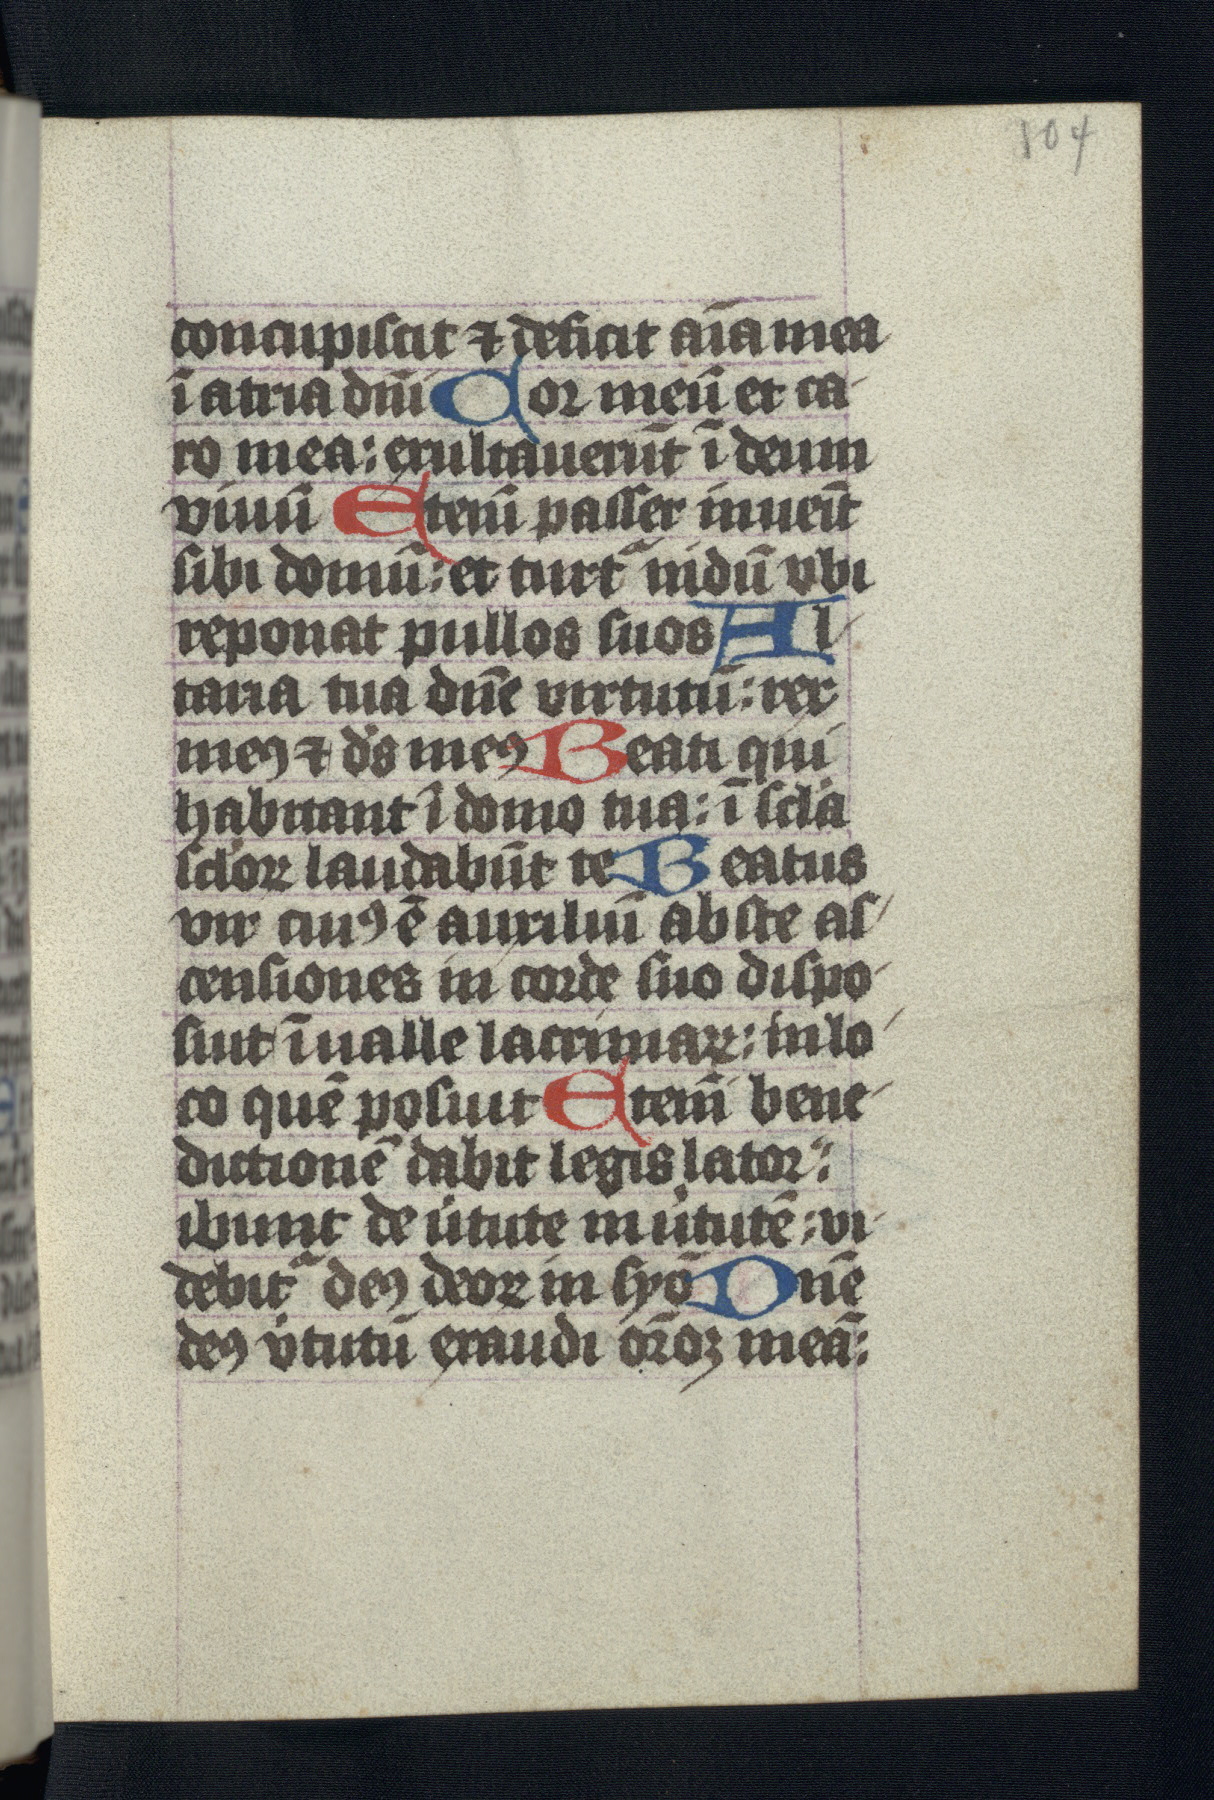 104
concupiscit ⁊ deficit aīa mea
ī atria dn̄i Cor meū et ca-
ro mea: exultauerūt ī deum
viuū Etenī passer inueīt
sibi domū: et turtᵃ nidū vbi
reponat pullos suos Al-
taria tua dn̄e virtutū: rex
meꝰ ⁊ ds̄ meꝰ Beati qui
habitant ī domo tua: ī scl̄a
scl̄oꝝ laudabūt te Beatus
vir cuiꝰ ē auxiliū abs te as-
censiones in corde suo dispo-
suit ī ualle lacrimaꝝ: in lo-
co quē posuit Etenī bene-
dictionē dabit legislator:
ibunt de v̇tute in v̇tutē: vi-
debitᵃ deꝰ deoꝝ in syō Dn̄e
deꝰ v̇tutū exaudi or̄oꝫ meā: